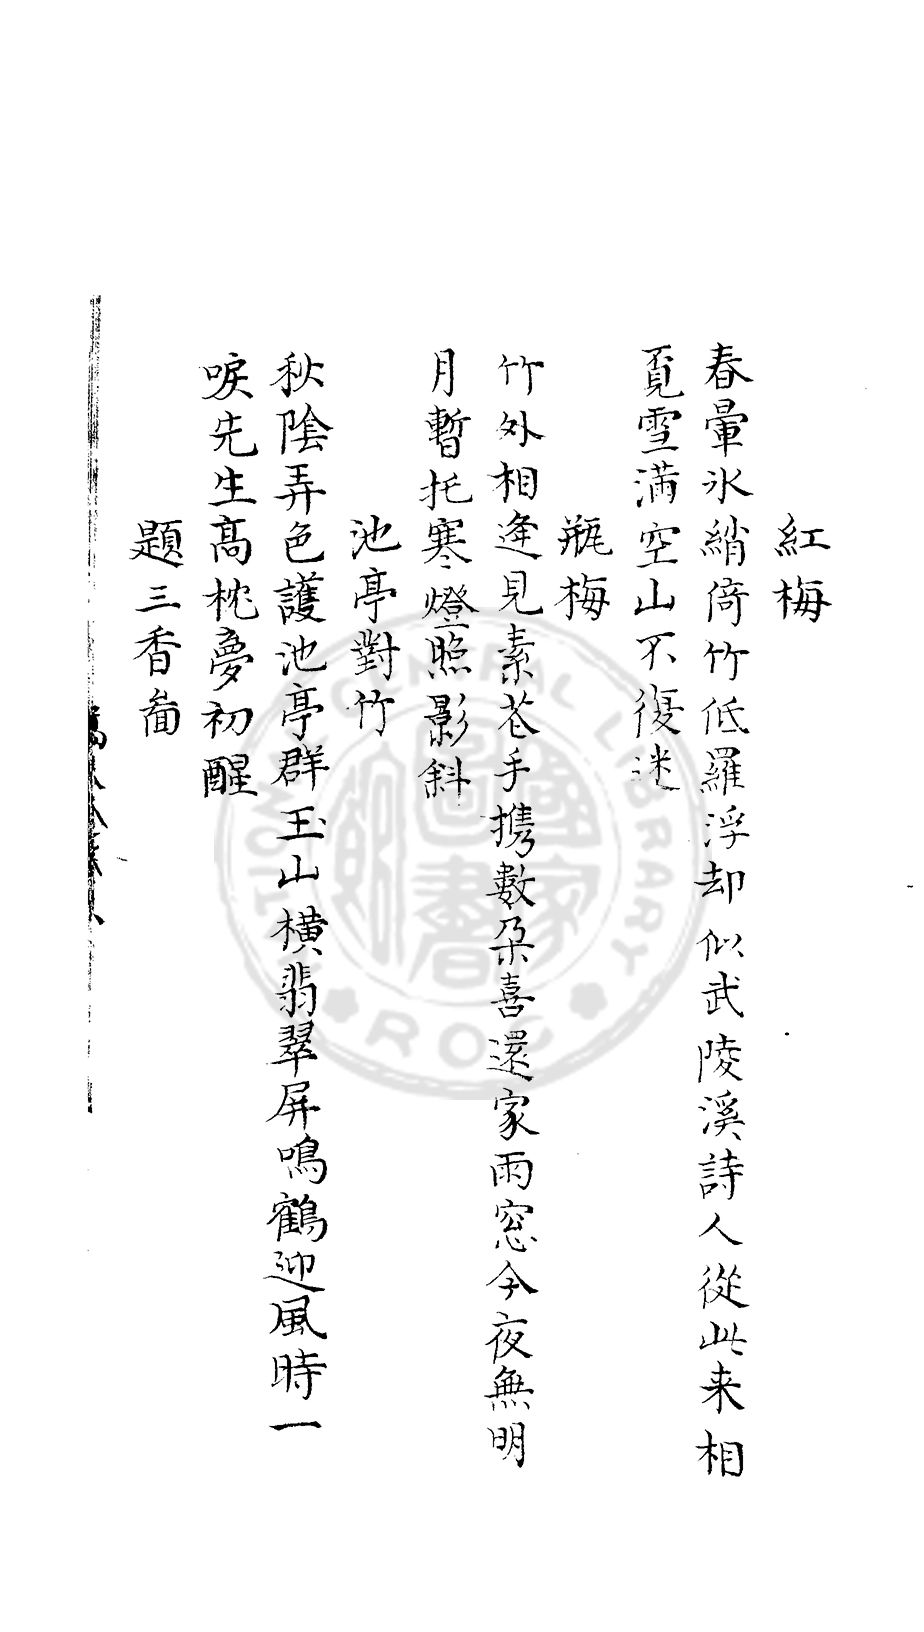 紅梅
春暈氷綃倚竹低羅浮却似武陵溪詩人從此来相
覔雪満空山不復迷
瓶梅
竹外相逢見素花手携數朶喜還家雨窓今夜無明
月暫托寒燈照影斜
池亭對竹
秋陰弄色護池亭群玉山横翡翠屏鳴鶴迎風時一
唳先生髙枕夢初醒
題三香啚
CENTRAL LIBRARY
ROC
國家圖書館